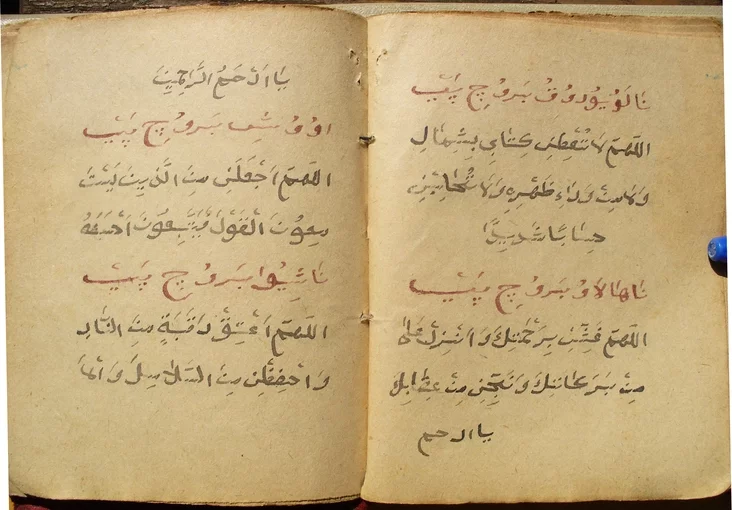 نَا لَوُيُو دُوُقُ بَرَوُ چِ پَيَبْ
اللهمّ لَا تُعْطِنِ كِتَابِ بِشِمَالِ
وَلَا مِنْ وَرَاءِ ظَهْرِهِ وَلَا تُحَاسِبْنِ
حِسَابًا شَدِيدًا
نَاهَالَاوُ بَرَوُ چِ پَيَبْ
اللهمّ غَشِّنِ بِرَحْمَتِكَ وَاَنْزِلْ عَلَىَّ
مِنْ بَرَكَاتِكَ وَنَجِّنِ مِنْ عَذَابِكَ
يا ارحم
يَا اَرْحَمُ الرَّاحِمِينَ
اوُوُشِ بَرَوُ چِ پَيَبْ
اللهمّ اَجْعَلْنِ مِنَ الَّذِينَ يَسْتَ
مِعُونَ الْقَوْلَ فَيَتَّبِعُونَ اَحْسَنَهُ
نَا شِيُوا بَرَوُ چِ پَيَبْ
اللهمّ اَعْتِقْ رَقَبَةِ مِنَ النَّارِ
وَاحْفِظْنِ مِنَ السَّلَاسِلَ وَالْهَا